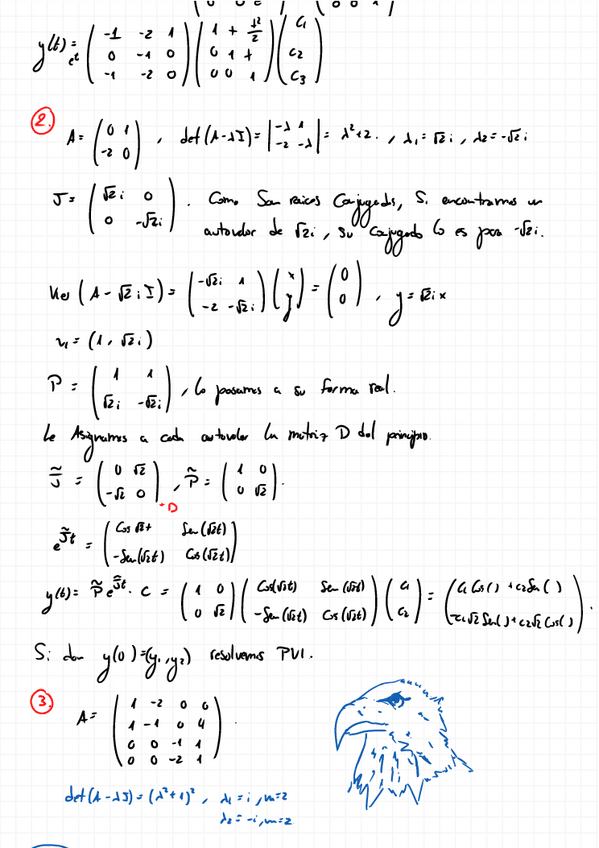 y(t) = e^t ( -1 -2 1 ; 0 -1 0 ; -1 -2 0 ) ( 1 t t²/2 ; 0 1 t ; 0 0 1 ) ( c₁ ; c₂ ; c₃ )
2.
A = ( 0 1 ; -2 0 ) , det(A-λI) = | -λ 1 ; -2 -λ | = λ²+2. , λ₁ = √2 i , λ₂ = -√2 i
J = ( √2 i 0 ; 0 -√2 i ) . Como Son raices Conjugadas, Si encontramos un
autovalor de √2 i, su conjugado lo es para -√2 i.
Ker (A - √2 i I) = ( -√2 i 1 ; -2 -√2 i ) ( x ; y ) = ( 0 ; 0 ) , y = √2 i x
v₁ = (1, √2 i)
P = ( 1 1 ; √2 i -√2 i ) , lo pasamos a su forma real.
Le Asignamos a cada autovalor la matriz D del principio.
J̃ = ( 0 √2 ; -√2 0 ) , P̃ = ( 1 0 ; 0 √2 ) .
D
e^J̃t = ( Cos √2t Sen(√2t) ; -Sen(√2t) Cos(√2t) )
y(t) = P̃ e^J̃t · C = ( 1 0 ; 0 √2 ) ( Cos(√2t) Sen(√2t) ; -Sen(√2t) Cos(√2t) ) ( c₁ ; c₂ ) = ( c₁ Cos( ) + c₂ Sen( ) ; -c₁√2 Sen( ) + c₂√2 Cos( ) ) .
Si dan y(0) = (y₁, y₂) resolvemos PVI.
3.
A = ( 1 -2 0 0 ; 1 -1 0 4 ; 0 0 -1 1 ; 0 0 -2 1 ) .
det(A-λI) = (λ²+1)² , λ₁ = i, m=2
λ₂ = -i, m=2